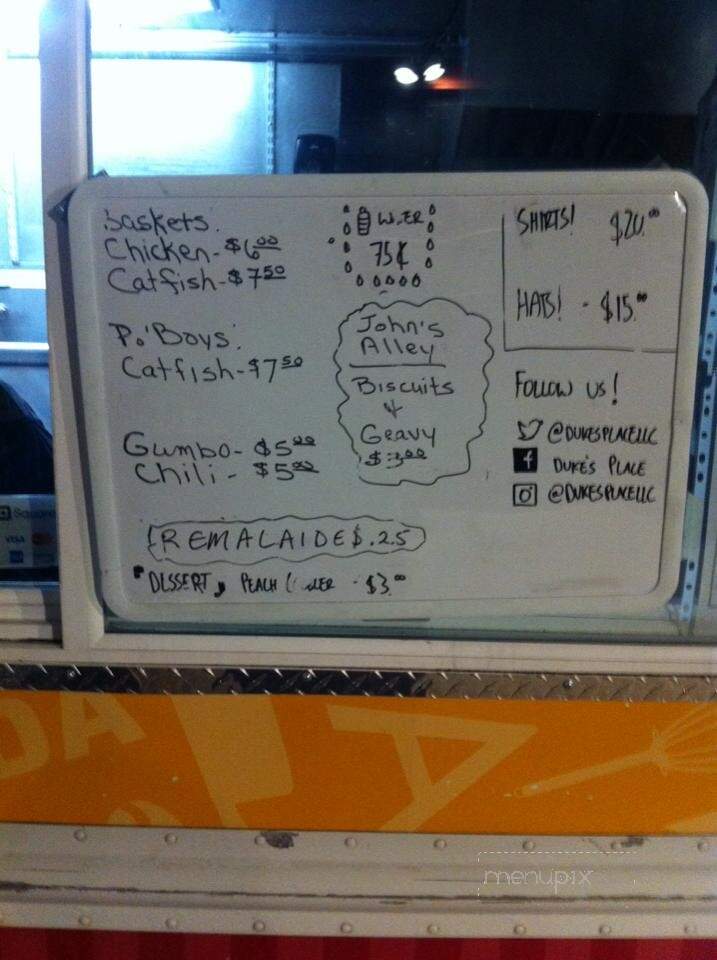 Baskets.
Chicken - $6.00
Catfish - $7.50
Po'Boys:
Catfish - $7.50
Gumbo - $5.00
Chili - $5.00
REMALAIDE $.25
DESSERT, PEACH - $3.00
75¢
John's
Alley
Biscuits
&
Geavy
$3.00
SHIRTS! $20.00
HATS! - $15.00
FOLLOW US!
@DUKESPLACELLC
f DUKE'S PLACE
@DUKESPLACELLC
Square
VISA
DA
A
menupix